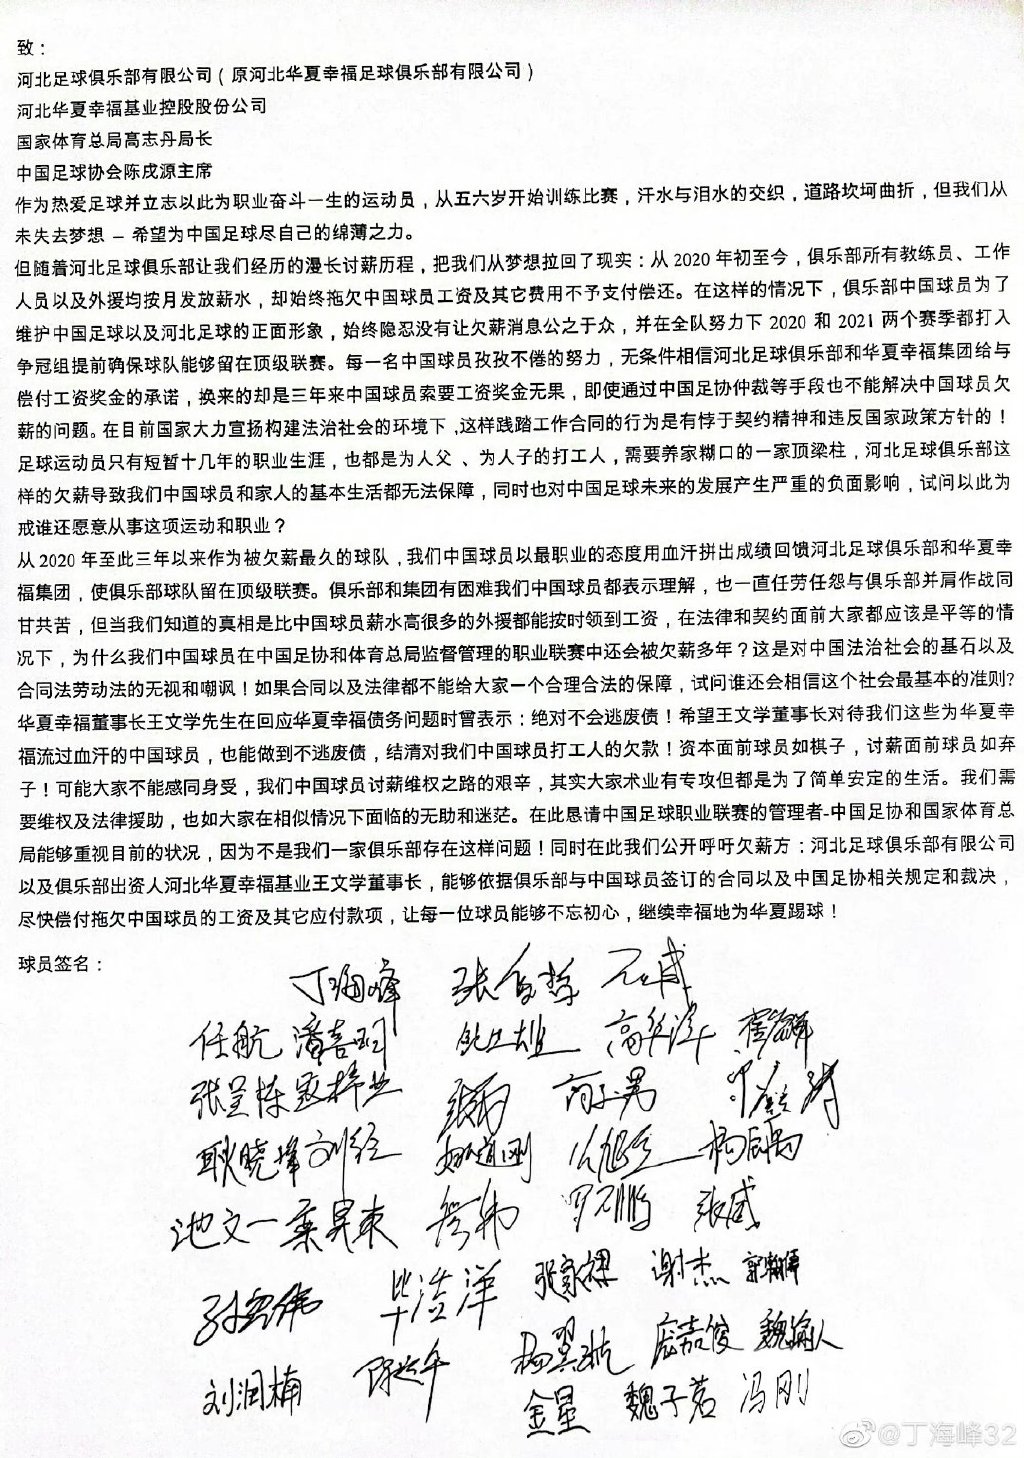 致：
河北足球俱乐部有限公司（原河北华夏幸福足球俱乐部有限公司）
河北华夏幸福基业控股股份公司
国家体育总局高志丹局长
中国足球协会陈戌源主席
作为热爱足球并立志以此为职业奋斗一生的运动员，从五六岁开始训练比赛，汗水与泪水的交织，道路坎坷曲折，但我们从
未失去梦想 – 希望为中国足球尽自己的绵薄之力。
但随着河北足球俱乐部让我们经历的漫长讨薪历程，把我们从梦想拉回了现实：从 2020 年初至今，俱乐部所有教练员、工作
人员以及外援均按月发放薪水，却始终拖欠中国球员工资及其它费用不予支付偿还。在这样的情况下，俱乐部中国球员为了
维护中国足球以及河北足球的正面形象，始终隐忍没有让欠薪消息公之于众，并在全队努力下 2020 和 2021 两个赛季都打入
争冠组提前确保球队能够留在顶级联赛。每一名中国球员孜孜不倦的努力，无条件相信河北足球俱乐部和华夏幸福集团给与
偿付工资奖金的承诺，换来的却是三年来中国球员索要工资奖金无果，即使通过中国足协仲裁等手段也不能解决中国球员欠
薪的问题。在目前国家大力宣扬构建法治社会的环境下 ,这样践踏工作合同的行为是有悖于契约精神和违反国家政策方针的！
足球运动员只有短暂十几年的职业生涯，也都是为人父 、为人子的打工人，需要养家糊口的一家顶梁柱，河北足球俱乐部这
样的欠薪导致我们中国球员和家人的基本生活都无法保障，同时也对中国足球未来的发展产生严重的负面影响，试问以此为
戒谁还愿意从事这项运动和职业？
从 2020 年至此三年以来作为被欠薪最久的球队，我们中国球员以最职业的态度用血汗拼出成绩回馈河北足球俱乐部和华夏幸
福集团，使俱乐部球队留在顶级联赛。俱乐部和集团有困难我们中国球员都表示理解，也一直任劳任怨与俱乐部并肩作战同
甘共苦，但当我们知道的真相是比中国球员薪水高很多的外援都能按时领到工资，在法律和契约面前大家都应该是平等的情
况下，为什么我们中国球员在中国足协和体育总局监督管理的职业联赛中还会被欠薪多年？这是对中国法治社会的基石以及
合同法劳动法的无视和嘲讽！如果合同以及法律都不能给大家一个合理合法的保障，试问谁还会相信这个社会最基本的准则?
华夏幸福董事长王文学先生在回应华夏幸福债务问题时曾表示：绝对不会逃废债！希望王文学董事长对待我们这些为华夏幸
福流过血汗的中国球员，也能做到不逃废债，结清对我们中国球员打工人的欠款！资本面前球员如棋子，讨薪面前球员如弃
子！可能大家不能感同身受，我们中国球员讨薪维权之路的艰辛，其实大家术业有专攻但都是为了简单安定的生活。我们需
要维权及法律援助，也如大家在相似情况下面临的无助和迷茫。在此恳请中国足球职业联赛的管理者-中国足协和国家体育总
局能够重视目前的状况，因为不是我们一家俱乐部存在这样问题！同时在此我们公开呼吁欠薪方：河北足球俱乐部有限公司
以及俱乐部出资人河北华夏幸福基业王文学董事长，能够依据俱乐部与中国球员签订的合同以及中国足协相关规定和裁决，
尽快偿付拖欠中国球员的工资及其它应付款项，让每一位球员能够不忘初心，继续幸福地为华夏踢球！
球员签名：
丁海峰
任航 潘喜明 鲍亚雄 高华泽
张呈栋
耿晓峰 刘经 杨启禹
池文一 栾昊东 罗石鹏 张威
毕浩洋 张家祺 谢杰
刘润楠 杨翼航 应嘉俊
金星 魏子茗 冯刚
@丁海峰32